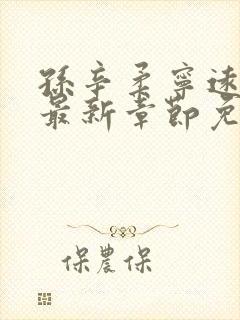 孫辛柔寧遠
最新章節免
保農保